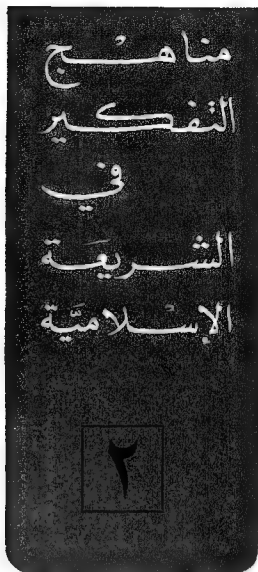 مناهج
التفكير
في
الشريعَة
الإسلاميَّة
٢